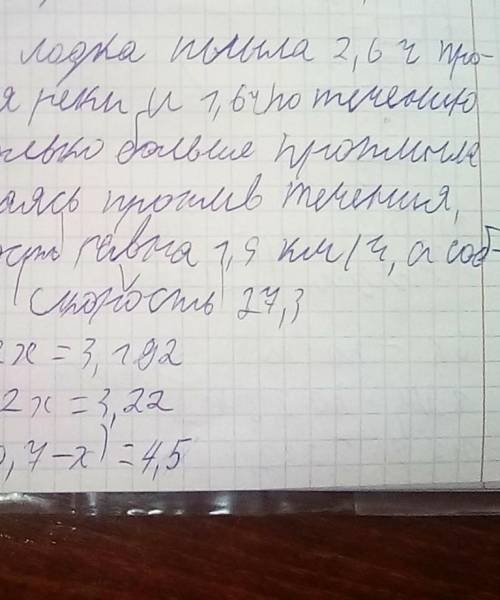 лодка плыла 2,6 ч про-
я реки и 1,6ч по течению
олько больше проплыла
аясь против течения,
ость равна 1,9 км/ч, а соб-
скорость 27,3
2x = 3,192
2x = 3,22
0,7-x) = 4,5